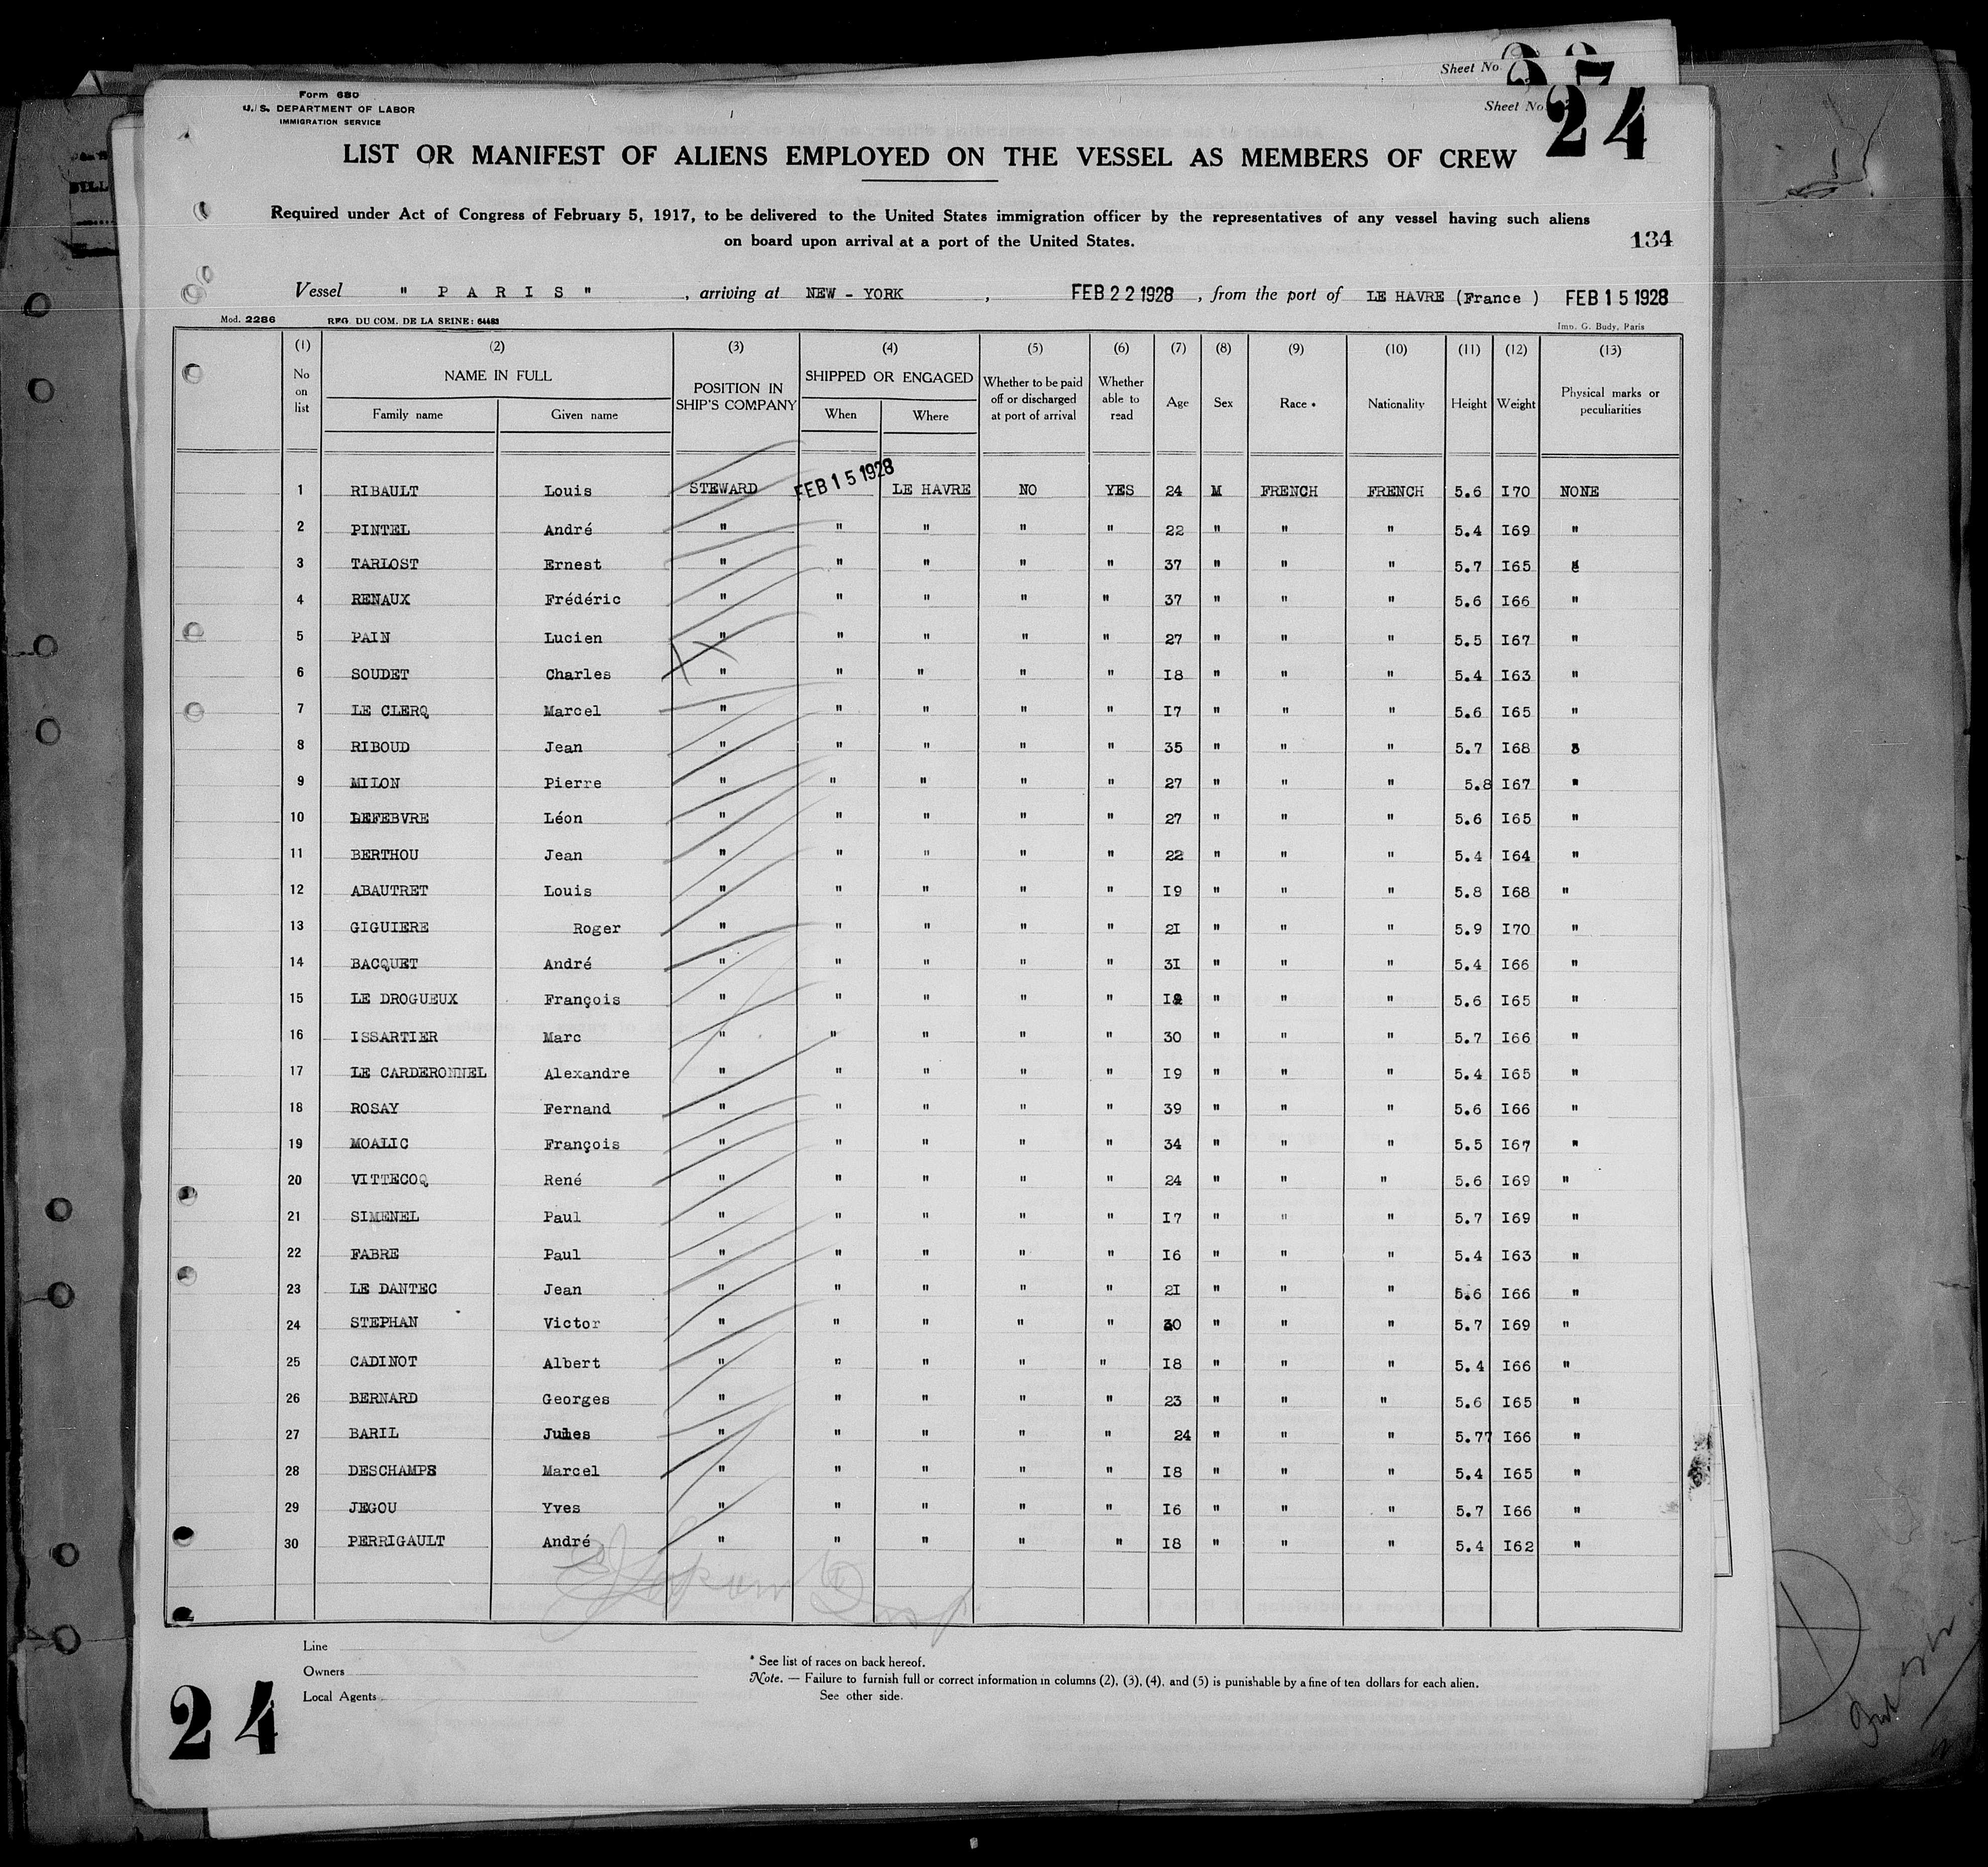 Sheet No
Form 680
U. S. DEPARTMENT OF LABOR
IMMIGRATION SERVICE
Sheet No 24
LIST OR MANIFEST OF ALIENS EMPLOYED ON THE VESSEL AS MEMBERS OF CREW
Required under Act of Congress of February 5, 1917, to be delivered to the United States immigration officer by the representatives of any vessel having such aliens
on board upon arrival at a port of the United States.
134
Vessel " P A R I S " , arriving at NEW - YORK , FEB 22 1928 , from the port of LE HAVRE (France ) FEB 15 1928
Mod. 2286 REG. DU COM. DE LA SEINE: 64483 Imp. G. Budy, Paris
(1) (2) (3) (4) (5) (6) (7) (8) (9) (10) (11) (12) (13)
No on list NAME IN FULL Family name Given name POSITION IN SHIP'S COMPANY SHIPPED OR ENGAGED When Where Whether to be paid off or discharged at port of arrival Whether able to read Age Sex Race * Nationality Height Weight Physical marks or peculiarities
1 RIBAULT Louis STEWARD FEB 15 1928 LE HAVRE NO YES 24 M FRENCH FRENCH 5.6 I70 NONE
2 PINTEL André " " " " " 22 " " " 5.4 I69 "
3 TARLOST Ernest " " " " " 37 " " " 5.7 I65
4 RENAUX Frédéric " " " " " 37 " " " 5.6 I66 "
5 PAIN Lucien " " " " " 27 " " " 5.5 I67 "
6 SOUDET Charles " " " " " I8 " " " 5.4 I63 "
7 LE CLERQ Marcel " " " " " I7 " " " 5.6 I65 "
8 RIBOUD Jean " " " " " 35 " " " 5.7 I68
9 MILON Pierre " " " " " 27 " " " 5.8 I67 "
10 LEFEBVRE Léon " " " " " 27 " " " 5.6 I65 "
11 BERTHOU Jean " " " " " 22 " " " 5.4 I64 "
12 ABAUTRET Louis " " " " " I9 " " " 5.8 I68 "
13 GIGUIERE Roger " " " " " 2I " " " 5.9 I70 "
14 BACQUET André " " " " " 3I " " " 5.4 I66 "
15 LE DROGUEUX François " " " " " " " " 5.6 I65 "
16 ISSARTIER Marc " " " " " 30 " " " 5.7 I66 "
17 LE CARDERONNEL Alexandre " " " " " I9 " " " 5.4 I65 "
18 ROSAY Fernand " " " " " 39 " " " 5.6 I66 "
19 MOALIC François " " " " " 34 " " " 5.5 I67 "
20 VITTECOQ René " " " " " 24 " " " 5.6 I69 "
21 SIMENEL Paul " " " " " I7 " " " 5.7 I69 "
22 FABRE Paul " " " " " I6 " " " 5.4 I63 "
23 LE DANTEC Jean " " " " " 2I " " " 5.6 I66 "
24 STEPHAN Victor " " " " " " " " 5.7 I69 "
25 CADINOT Albert " " " " " I8 " " " 5.4 I66 "
26 BERNARD Georges " " " " " 23 " " " 5.6 I65 "
27 BARIL Jules " " " " " 24 " " " 5.77 I66 "
28 DESCHAMPS Marcel " " " " " I8 " " " 5.4 I65 "
29 JEGOU Yves " " " " " I6 " " " 5.7 I66 "
30 PERRIGAULT André " " " " " I8 " " " 5.4 I62 "
Line
Owners
Local Agents
* See list of races on back hereof.
Note. — Failure to furnish full or correct information in columns (2), (3), (4), and (5) is punishable by a fine of ten dollars for each alien.
See other side.
24